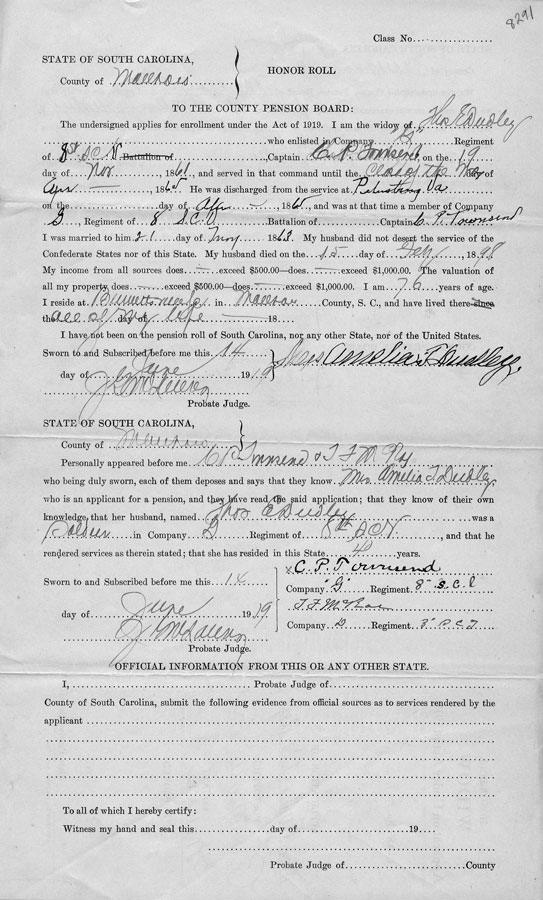 8291
Class No.
STATE OF SOUTH CAROLINA,
County of
HONOR ROLL
TO THE COUNTY PENSION BOARD:
The undersigned applies for enrollment under the Act of 1919. I am the widow of Thos E Dudley
who enlisted in Company "G" Regiment
of 8th S.C.V. Battalion of Captain C. P. Townsend, on the 19
day of Nov, 1861, and served in that command until the Close of the War day of
Apr, 1865. He was discharged from the service at Va
on the day of Apr, 1865, and was at that time a member of Company
G, Regiment of 8 S.C.V. Battalion of Captain C. P. Townsend
I was married to him 21 day of 1863. My husband did not desert the service of the
Confederate States nor of this State. My husband died on the 15 day of Feby, 1898
My income from all sources does exceed $500.00—does exceed $1,000.00. The valuation of
all my property does exceed $500.00—does exceed $1,000.00. I am 76 years of age.
I reside at in County, S. C., and have lived there since
the all of my life day of 18
I have not been on the pension roll of South Carolina, nor any other State, nor of the United States.
Sworn to and Subscribed before me this 14 Mrs Amelia T. Dudley.
day of June 1919
Probate Judge.
STATE OF SOUTH CAROLINA,
County of
Personally appeared before me C P Townsend & T F
who being duly sworn, each of them deposes and says that they know Mrs. Amelia T Dudley
who is an applicant for a pension, and they have read the said application; that they know of their own
knowledge that her husband, named Thos E Dudley was a
Soldier in Company G Regiment of 8th SCV, and that he
rendered services as therein stated; that she has resided in this State years.
C. P. Townsend
Sworn to and Subscribed before me this 14
Company "G" Regiment 8"
T F
day of June 1919
Company Regiment 8"
Probate Judge.
OFFICIAL INFORMATION FROM THIS OR ANY OTHER STATE.
I, Probate Judge of
County of South Carolina, submit the following evidence from official sources as to services rendered by the
applicant
To all of which I hereby certify:
Witness my hand and seal this day of 19
Probate Judge of County